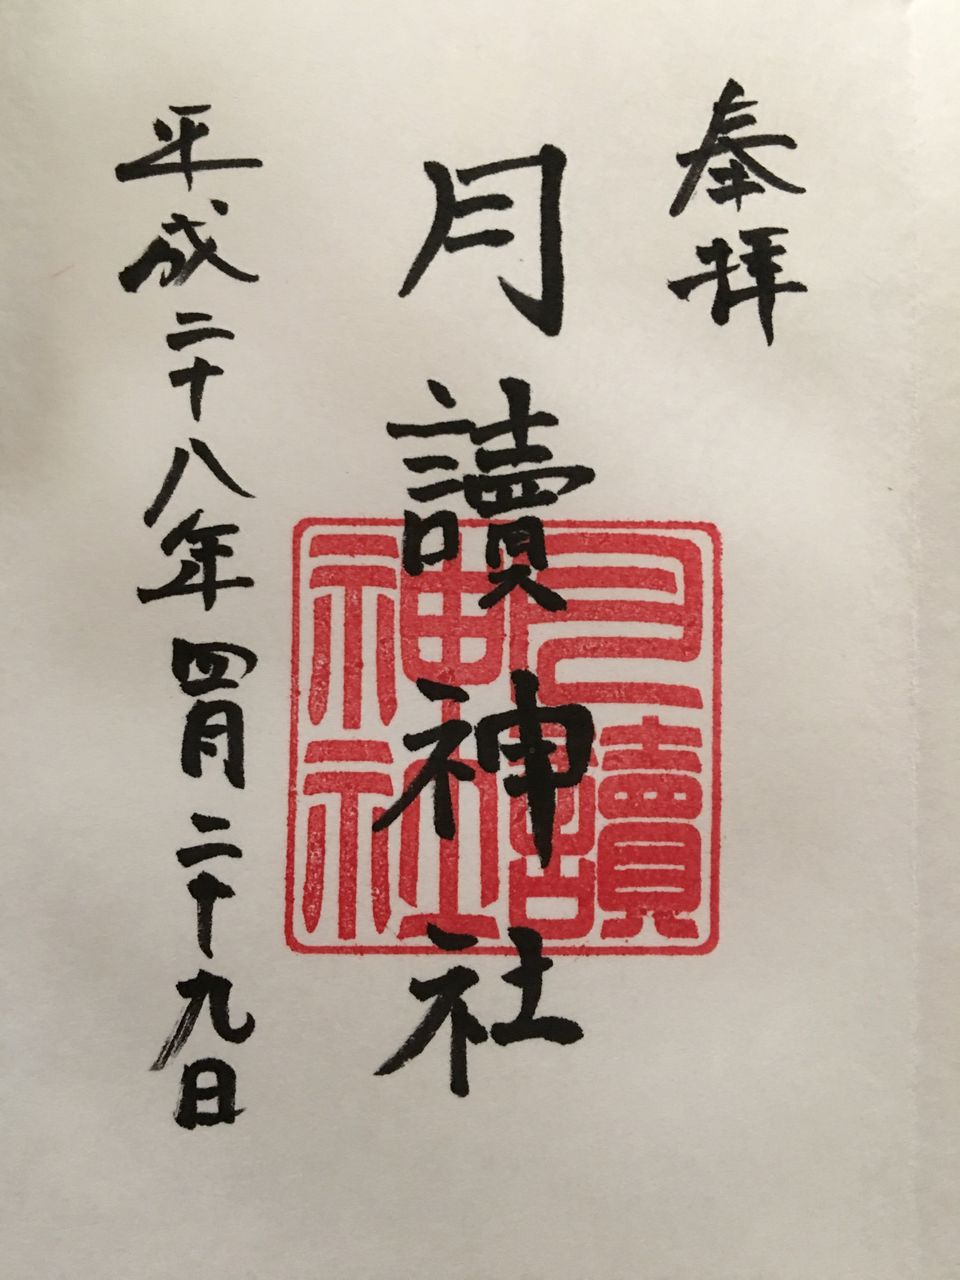 奉拝
月讀神社
月讀神社
平成二十八年四月二十九日